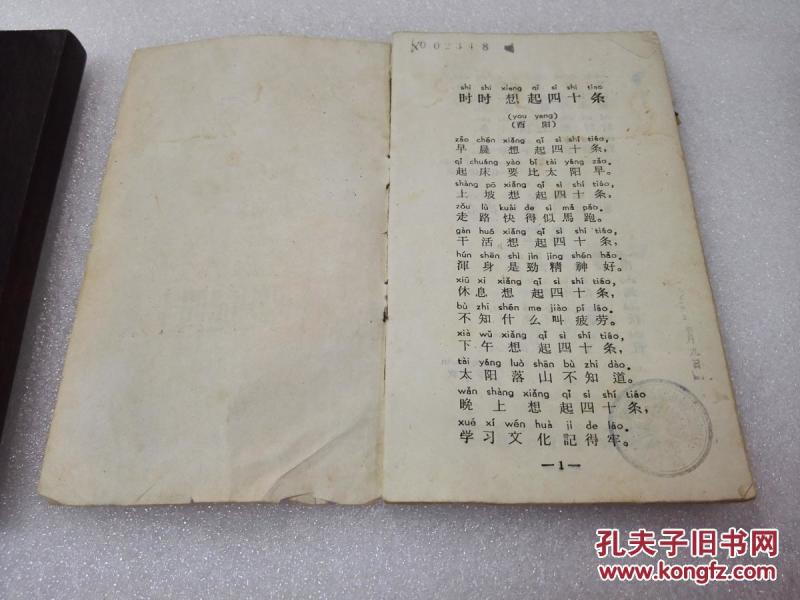 002348
shí shí xiǎng qǐ sì shí tiáo
时时想起四十条
(yǒu yáng)
(酉阳)
zǎo chén xiǎng qǐ sì shí tiáo,
早晨想起四十条,
qǐ chuáng yào bǐ tài yáng zǎo.
起床要比太阳早。
shàng pō xiǎng qǐ sì shí tiáo,
上坡想起四十条,
zǒu lù kuài de sì mǎ pǎo.
走路快得似馬跑。
gàn huó xiǎng qǐ sì shí tiáo,
干活想起四十条,
hún shēn shì jìn jīng shén hǎo.
渾身是勁精神好。
xiū xi xiǎng qǐ sì shí tiáo,
休息想起四十条,
bù zhī shén me jiào pí láo.
不知什么叫疲劳。
xià wǔ xiǎng qǐ sì shí tiáo,
下午想起四十条,
tài yáng luò shān bù zhī dào.
太阳落山不知道。
wǎn shàng xiǎng qǐ sì shí tiáo
晚上想起四十条,
xué xí wén huà jì de láo.
学习文化記得牢。
—1—
孔夫子旧书网
www.kongfz.com